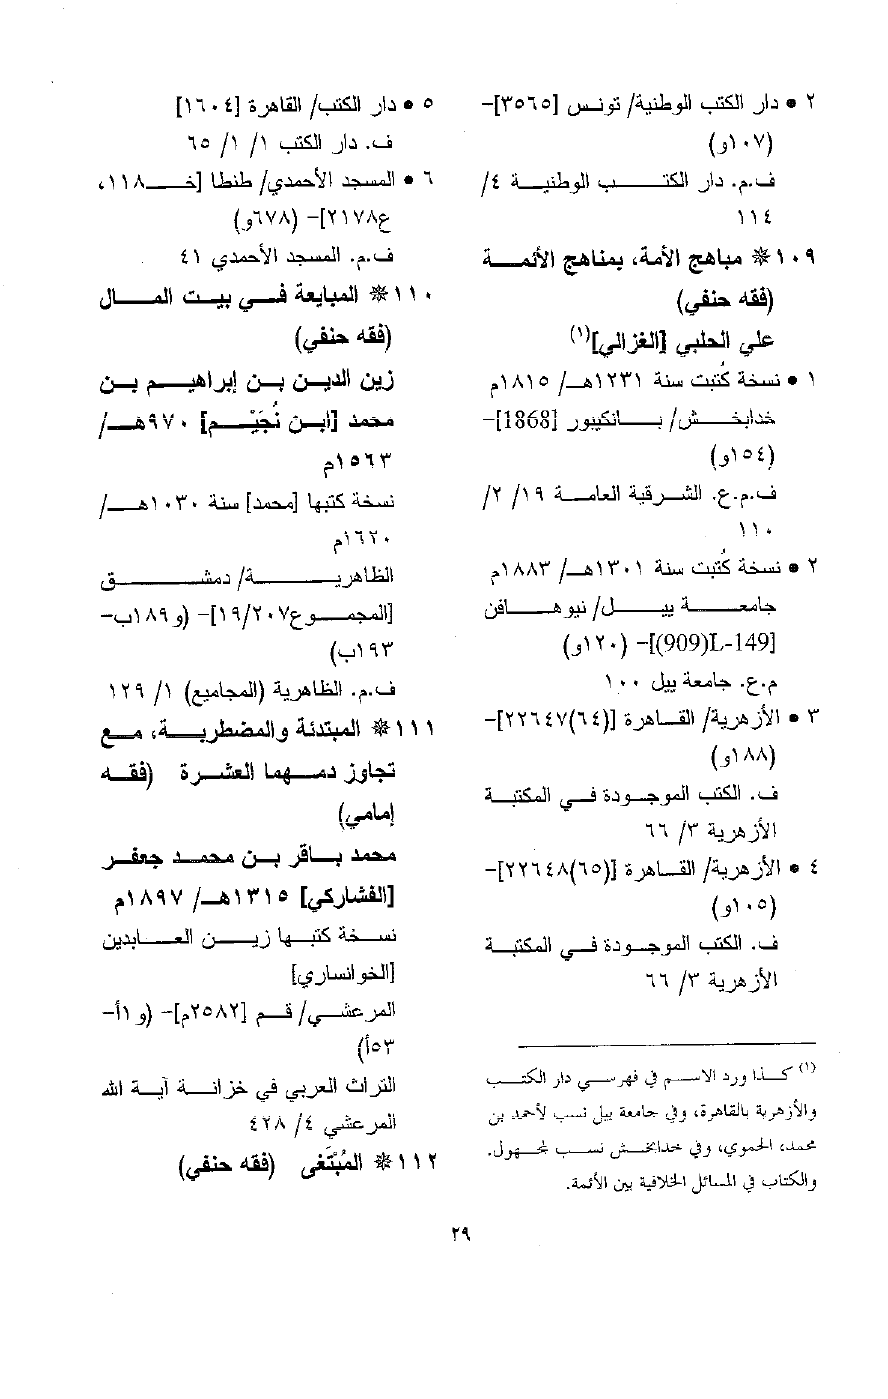 ٢ • دار الكتب الوطنية/ تونس [٣٥٦٥]-
(١٠٧و)
ف.م. دار الكتب الوطنية ٤/
١١٤
١٠٩ * مباهج الأمة، بمناهج الأئمة
(فقه حنفي)
علي الحلبي [الغزالي](١)
١ • نسخة كُتبت سنة ١٢٣١هـ/ ١٨١٥م
خدابخش/ بانكيبور [1868]-
(١٥٤و)
ف.م.ع. الشرقية العامة ١٩/ ٢/
١١٠
٢ • نسخة كُتبت سنة ١٣٠١هـ/ ١٨٨٣م
جامعة ييل/ نيوهافن
[L-149(909)]- (١٢٠و)
م.ع. جامعة ييل ١٠٠
٣ • الأزهرية/ القاهرة [(٦٤)٢٢٦٤٧]-
(١٨٨و)
ف. الكتب الموجودة في المكتبة
الأزهرية ٣/ ٦٦
٤ • الأزهرية/ القاهرة [(٦٥)٢٢٦٤٨]-
(١٠٥و)
ف. الكتب الموجودة في المكتبة
الأزهرية ٣/ ٦٦
(١) كذا ورد الاسم في فهرسي دار الكتب
والأزهرية بالقاهرة، وفي جامعة ييل نسب لأحمد بن
محمد، الحموي، وفي خدابخش نسب لمجهول.
والكتاب في المسائل الخلافية بين الأئمة.
٥ • دار الكتب/ القاهرة [١٦٠٤]
ف. دار الكتب ١/ ١/ ٦٥
٦ • المسجد الأحمدي/ طنطا [خـ١١٨،
ع٢١٧٨]- (٦٧٨و)
ف.م. المسجد الأحمدي ٤١
١١٠ * المبايعة في بيت المال
(فقه حنفي)
زين الدين بن إبراهيم بن
محمد [ابن نُجَيْم] ٩٧٠هـ/
١٥٦٣م
نسخة كتبها [محمد] سنة ١٠٣٠هـ/
١٦٢٠م
الظاهرية/ دمشق
[المجموع١٩/٢٠٧]- (و١٨٩ب-
١٩٣ب)
ف.م. الظاهرية (المجاميع) ١/ ١٢٩
١١١ * المبتدئة والمضطربة، مع
تجاوز دمهما العشرة (فقه
إمامي)
محمد باقر بن محمد جعفر
[الفشاركي] ١٣١٥هـ/ ١٨٩٧م
نسخة كتبها زين العابدين
[الخوانساري]
المرعشي/ قم [٢٥٨٢م]- (و١أ-
٥٣أ)
التراث العربي في خزانة آية الله
المرعشي ٤/ ٤٢٨
١١٢ * المُبْتَغى (فقه حنفي)
٢٩